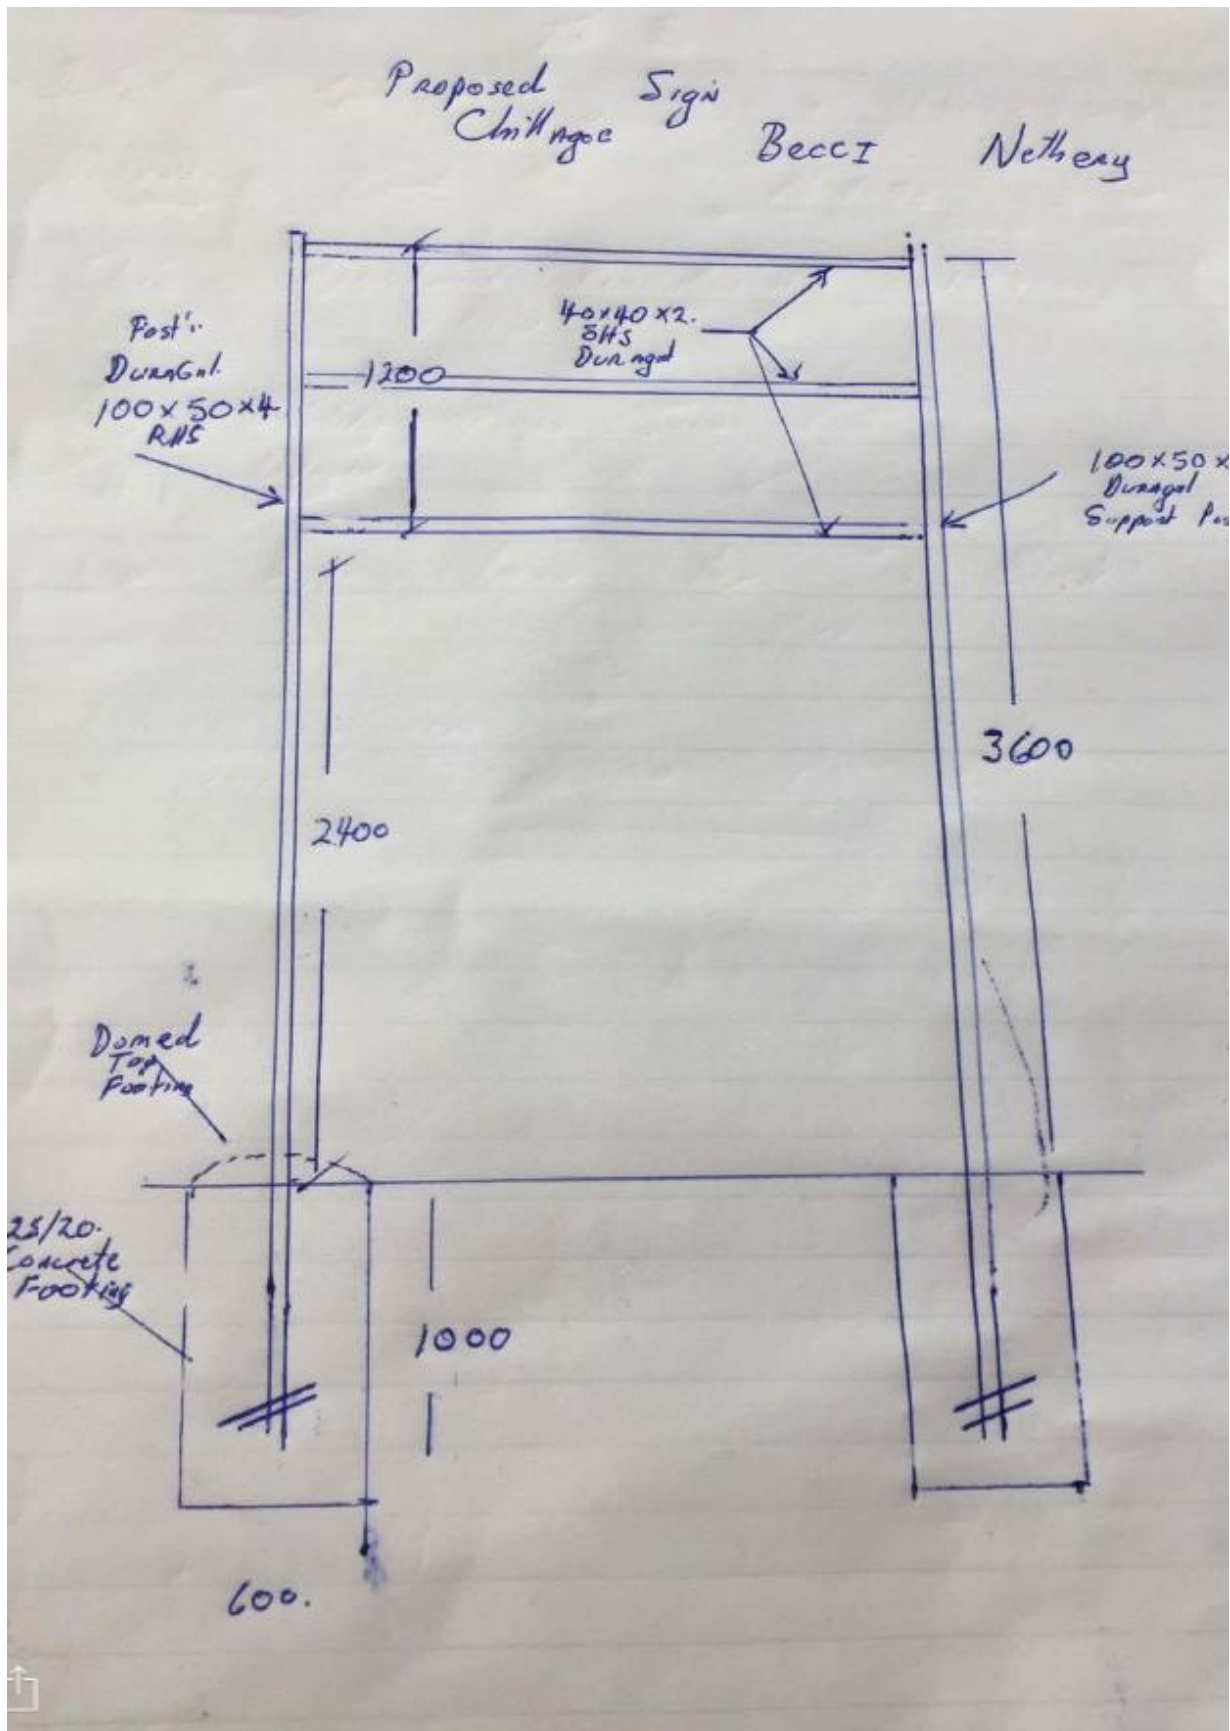 Proposed Sign
Chillagoe Becci Nethery
Post's
DuraGal.
100x50x4
RHS
1200
40x40x2.
SHS
Duragal
100x50x
Duragal
Support Pos
3600
2400
Domed
Top
Footing
25/20.
Concrete
Footing
1000
600.